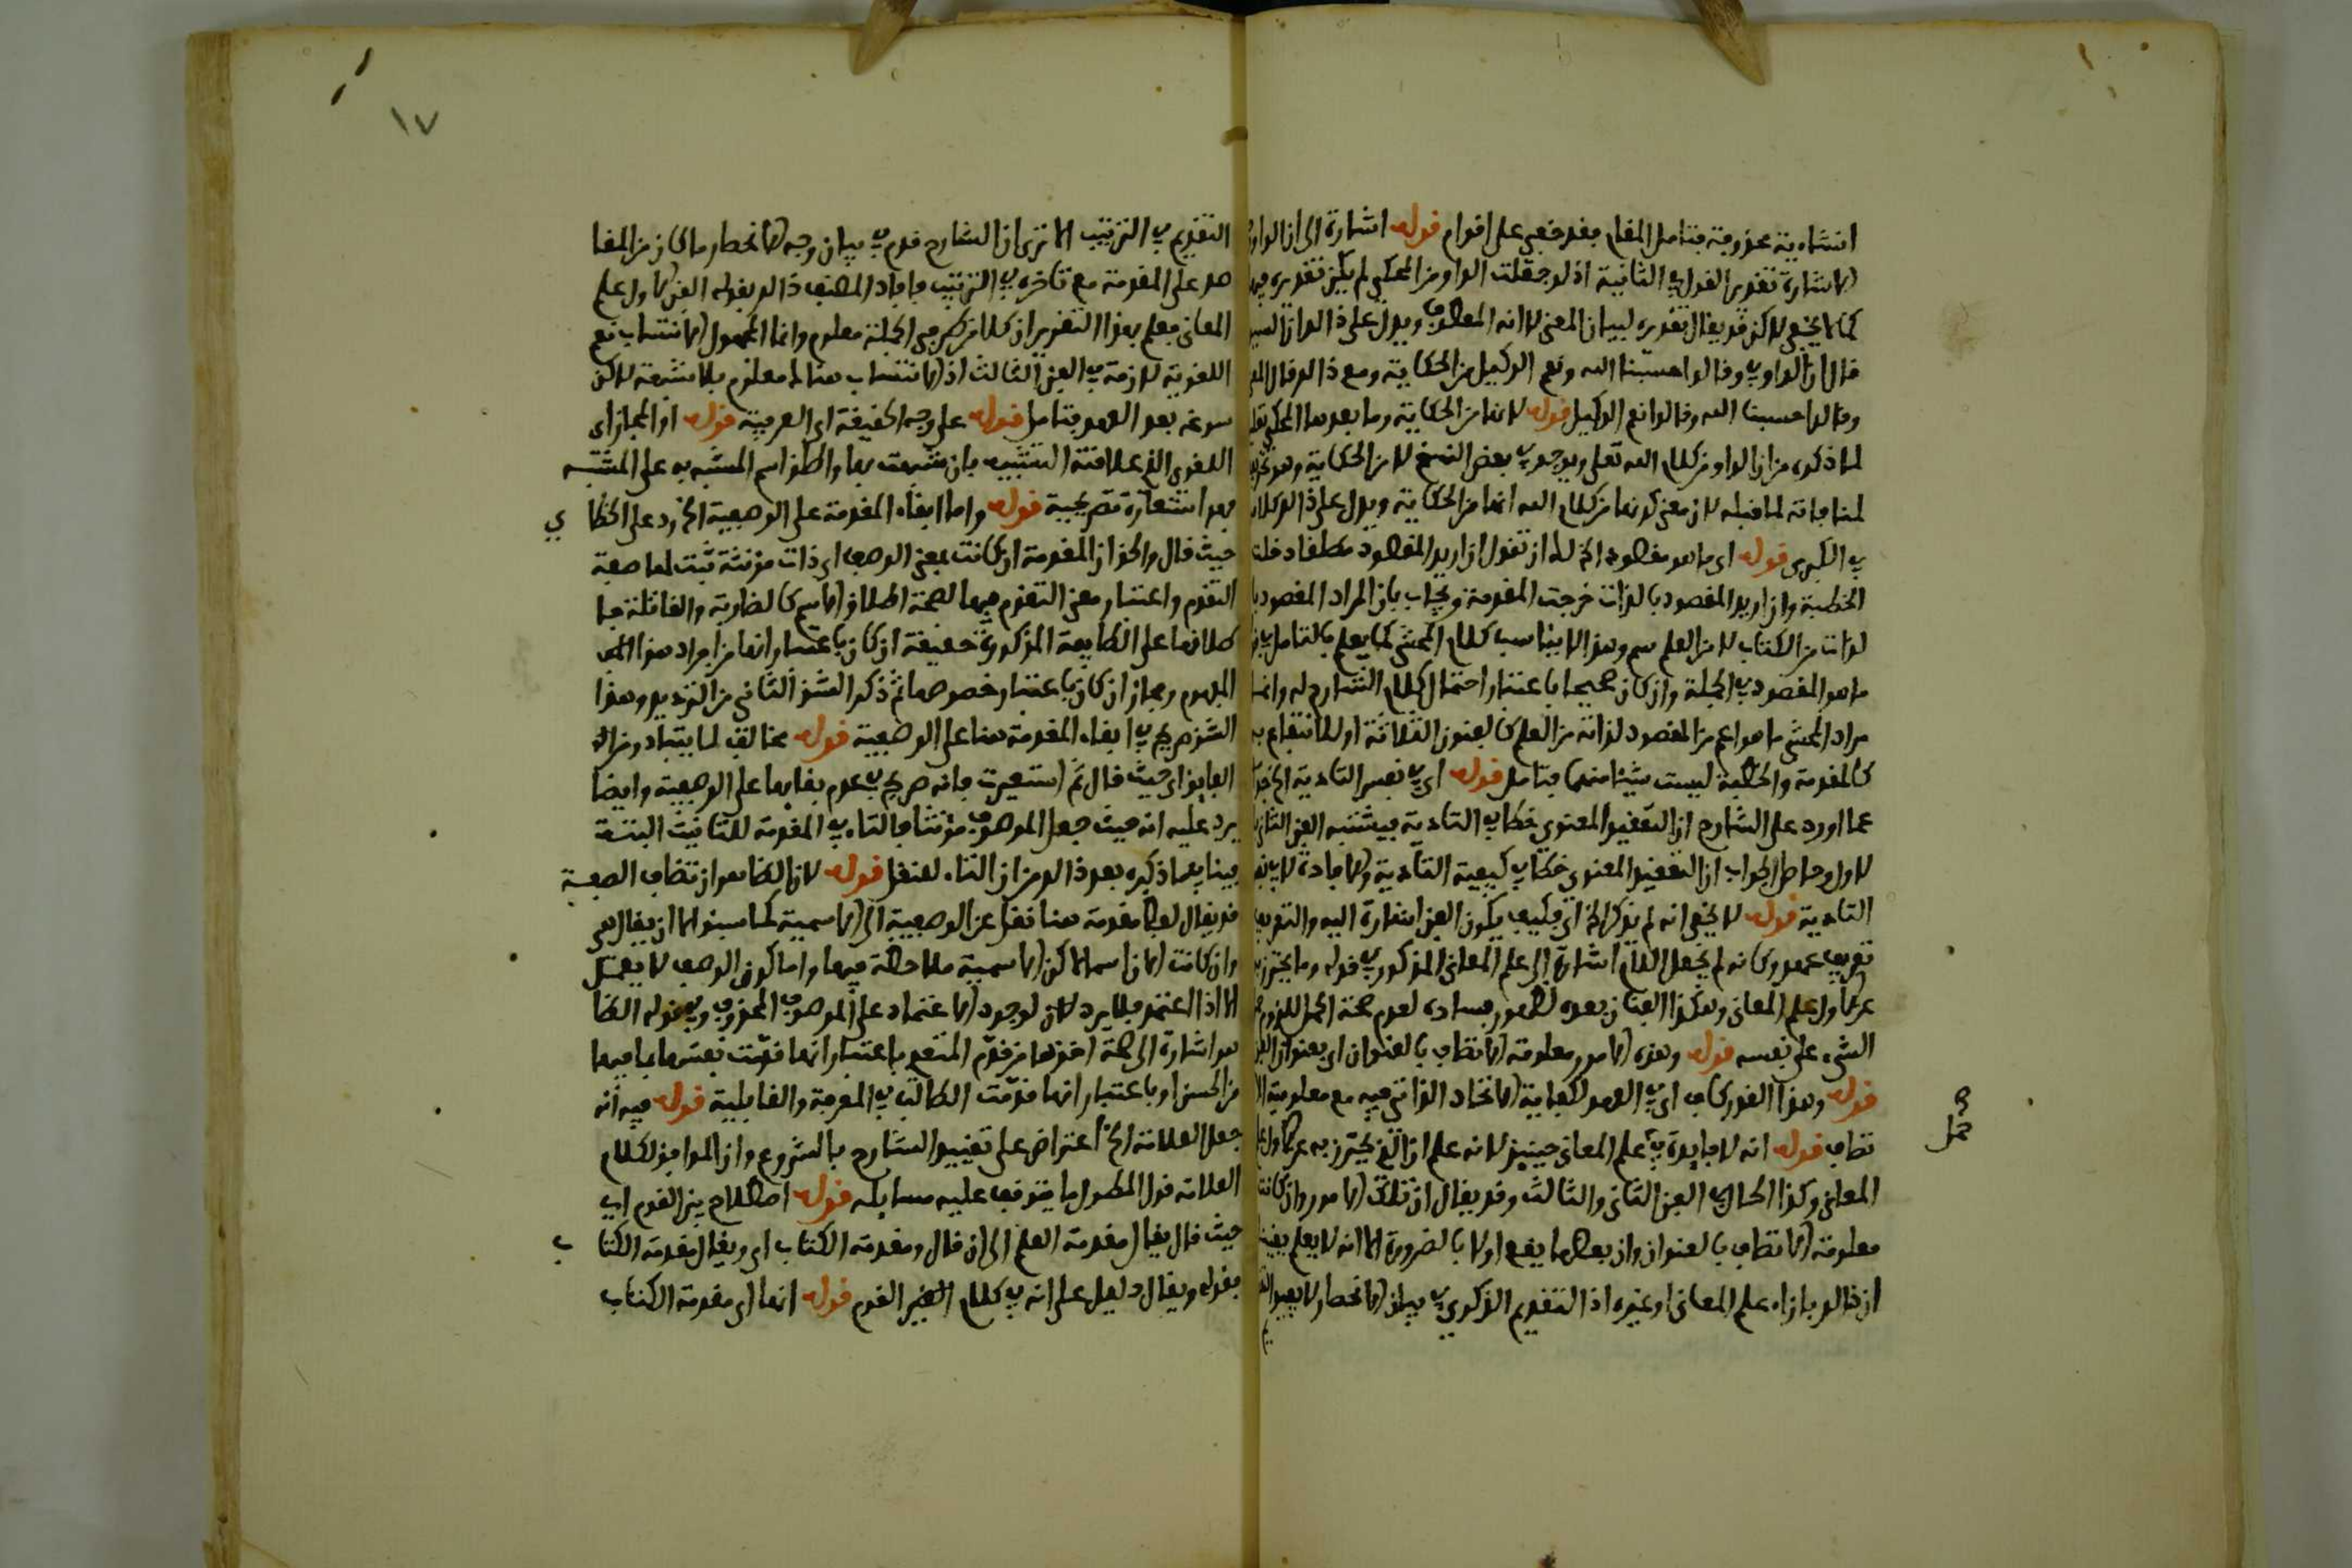 انشاءية محذوفة فتامل المقام فقد خفي على اقوام قوله اشارة الى ان الواو
الاشارة تقدير القول في الثانية اذ لو جعلت الواو من المحكي لم يكن تقديره
كما لا يخفى لاكن قد يقال تقديره لبيان المعنى لا انه المعطوف ويدل على ذالك ان السيد
قال ان الواو في وقالوا حسبنا الله ونعم الوكيل من الحكاية ومع ذالك قال
وقالوا حسبنا الله وقالوا نعم الوكيل قوله لا انها من الحكاية وما بعدها المحكي
لما ذكره من ان الواو من كلام الله تعلى ويوجد في بعض النسخ لا من الحكاية وهو
لمنافاته لما قبله لان معنى كونها من كلام الله انها من الحكاية ويدل على ذالك
في الكبرى قوله اي ما هو مقصود الخ لك ان تقول ان اريد المقصود مطلقا دخلت
الخطبة وان اريد المقصود بالذات خرجت المقدمة ويجاب بان المراد المقصود
لذات من الكتاب لا من العلم سم وهذا لا يناسب كلام المحشي كما يعلم بالتامل
ما هو المقصود في الجملة وان كان صحيحا باعتبار احتمال كلام الشارح له وانما
مراد المحشي ما هو اعم من المقصود لذاته من العلم كالفنون الثلاثة او للانتفاع به
كالمقدمة والخطبة ليست شيئا منهما فتامل قوله اي في نفس التادية الخ
عما اورد على الشارح ان التعقيد المعنوي خطا في التادية فيشتبه الفن الثاني
لاول وحاصل الجواب ان التعقيد المعنوي خطا في كيفية التادية والافادة لا في
التادية قوله لا يخفى انه لم يذكر الخ اي فكيف يكون الفن اشارة اليه والتعريف
تعريف عهد وكانه لم يجعل اللام اشارة الى علم المعاني المذكور في قوله وما يحترز به
عن الاول علم المعاني وهكذا الفنان بعده لظهور فساده لعدم صحة الحمل للزوم
الشيء على نفسه قوله وهذه الامور معلومة الاتصاف بالعنوان اي بعنوان
قوله وهذا القدر كاف اي في العهد لكفاية الاتحاد الذاتي فيه مع معلومية
تصاف قوله انه لا فايدة في علم المعاني حينيذ لانه علم ان الذي يحترز به عن الاول
المعاني وكذا الحال في الفن الثاني والثالث وقد يقال ان تلك الامور وان كانت
معلومة الاتصاف بالعنوان وان بعضها يقع اولا بالضرورة الا انه لا يعلم
ان ذالك بازاء علم المعاني او غيره اذ التقديم المذكور في بيان الانحصار لا يفيد
١٧
التقديم في الترتيب الا ترى ان الشارح قدم في بيان وجه الانحصار ما كان من المقا
صد على المقدمة مع تاخره في الترتيب فافاد المصنف ذالك بقوله الفن الاول علم
المعاني فعلم بهذا التقرير ان كلا من طرفي الجملة معلوم وانما المجهول الانتساب نعم
اللغوية لازمة في الفن الثالث اذ الانتساب هنالك معلوم بلا شبهة لاكن
سوغه بعد العهد فتامل قوله على وجه الحقيقة اي العرفية قوله او المجاز اي
اللغوي الذي علاقته التشبيه بان شبهت بها واطلق اسم المشبه به على المشبه
فهو استعارة تصريحية قوله واما ابقاء المقدمة على الوصفية الخ رد على الخطا
ي
حيث قال والحق ان المقدمة ان كانت بمعنى الوصف اي ذات مؤنثة ثبت لها صفة
التقدم واعتبار معنى التقدم فيها لصحة اطلاق الاسم كالضاربة والقاتلة فا
طلاقها على الطايفة المذكورة حقيقة ان كان باعتبار انها من افراد هذا المف
المفهوم ومجاز ان كان باعتبار خصوصها ثم ذكر الشق الثاني من الترديد وهذا
الشق صريح في ابقاء المقدمة هنا على الوصفية قوله مخالف لما يتبادر من ال
الفايق اي حيث قال ثم استعيرت فانه صريح في عدم بقايها على الوصفية وايضا
يرد عليه انه حيث جعل الموصوف مؤنثا فالتاء في المقدمة للتانيث البتة
فينا فيما ذكره بعد ذالك من ان التاء لنقل قوله لان الظاهر ان تضاف الصفة
قد يقال لفظ مقدمة هنا نقل عن الوصفية الى الاسمية كما سبق الا ان يقال هي
وان كانت الان اسما لاكن الاسمية ملاحظة فيها واما كون الوصف لا يعمل
الا اذا اعتمد فلا يرد لان لوجود الاعتماد على الموصوف المحذوف وبقوله الظا
هر اشارة الى صحة اخذها من قدم المتعدي باعتبار انها قدمت نفسها بما فيها
من الحسن او باعتبار انها قدمت الطالب في المعرفة والقابلية قوله فيه انه
جعل العلامة الخ اعتراض على تقييد الشارح بالشروع وان الموافق لكلام
العلامة قول المطول ما يتوقف عليه مسايله قوله اصطلاح بين القوم اي
حيث قال يقال مقدمة العلم الى ان قال ومقدمة الكتاب اي ويقال مقدمة الكتا
ب
فقوله ويقال دليل على انه في كلام القوم قوله انها اي مقدمة الكتاب